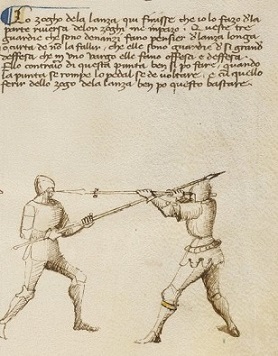 Lo zogho dela lanza, qui finisse che io lo fazo dela
parte riversa delor zoghi me inpazo. E queste tre
guardie che sono denanzi fazo pensier d lanza longa
o curta de no la fallir, che elle sono guardie d si grand
deffesa, che in uno vargo elle fano offesa e deffesa.
Ello contrario di questa punta ben si po fare, quando
la punta se rompe lo pedal se de voltare, e cum quello
ferir dello zogo dela lanza ben po questo bastare.